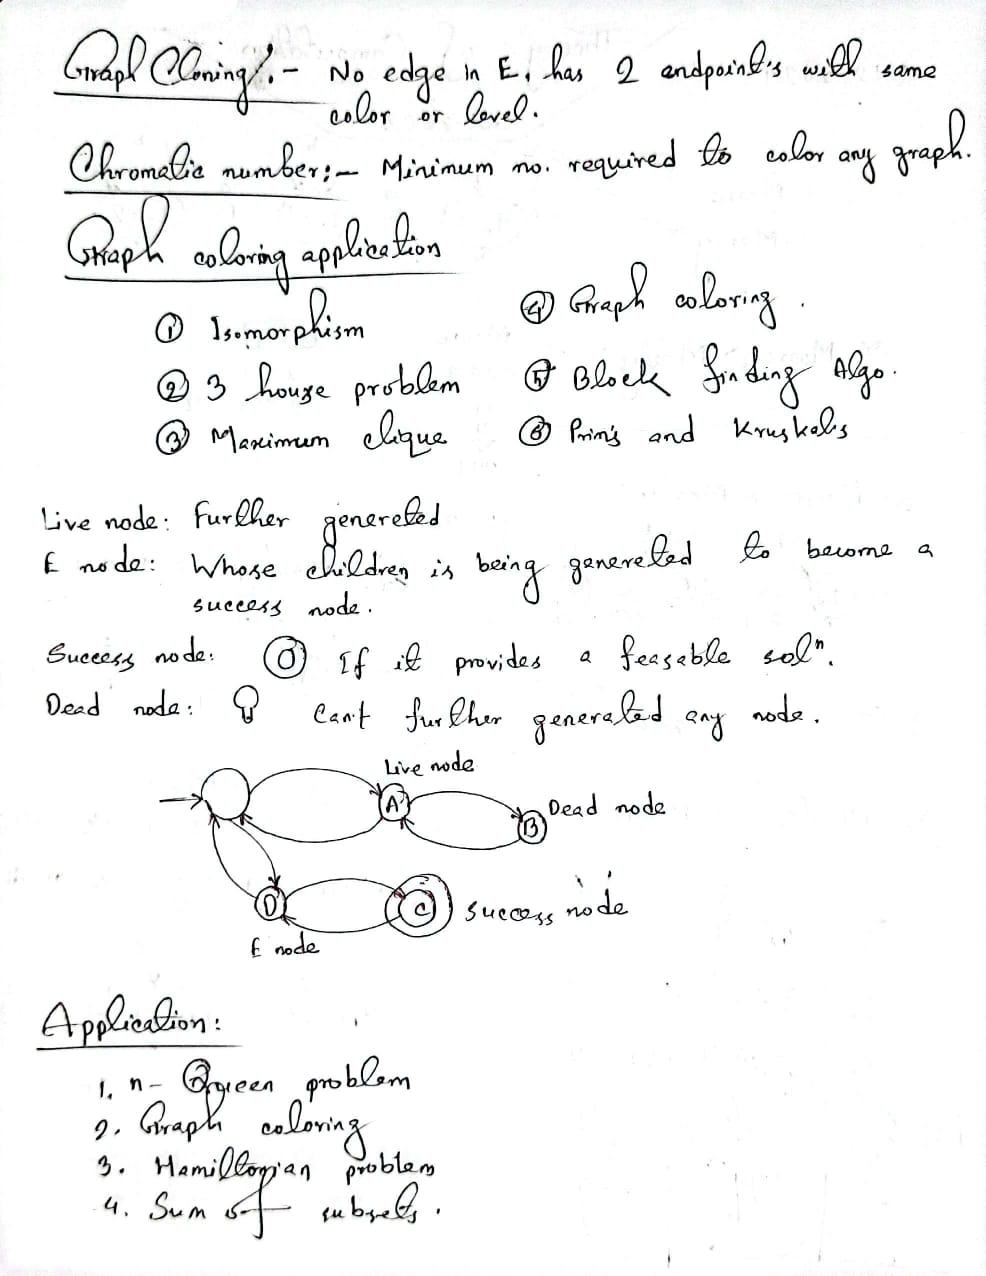 Graph Cloning :- No edge in E, has 2 endpoint's with same
color or level.
Chromatic number :- Minimum no. required to color any graph.
Graph coloring application
① Isomorphism
② 3 house problem
③ Maximum clique
④ Graph coloring.
⑤ Block finding Algo.
⑥ Prim's and Kruskal's
Live node: Further genereted
E node: Whose children is being genereted to become a
success node.
Success node: If it provides a feasable solⁿ.
Dead node: Can't further generated any node.
Live node
A
B
Dead node
D
C
Success node
E node
Application:
1. n- Queen problem
2. Graph coloring
3. Hamiltonian problem
4. Sum of subsets.